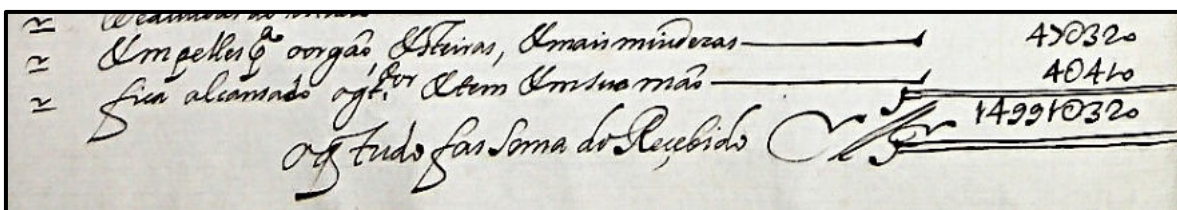 Em pelles pª oorgão, Esteiras, Emais miudezas 47$320
fica alcansado o gt.ᵈᵒʳ Etem Emsua mão 4$410
oq̃ tudo fas soma do Reçebido 14991$320